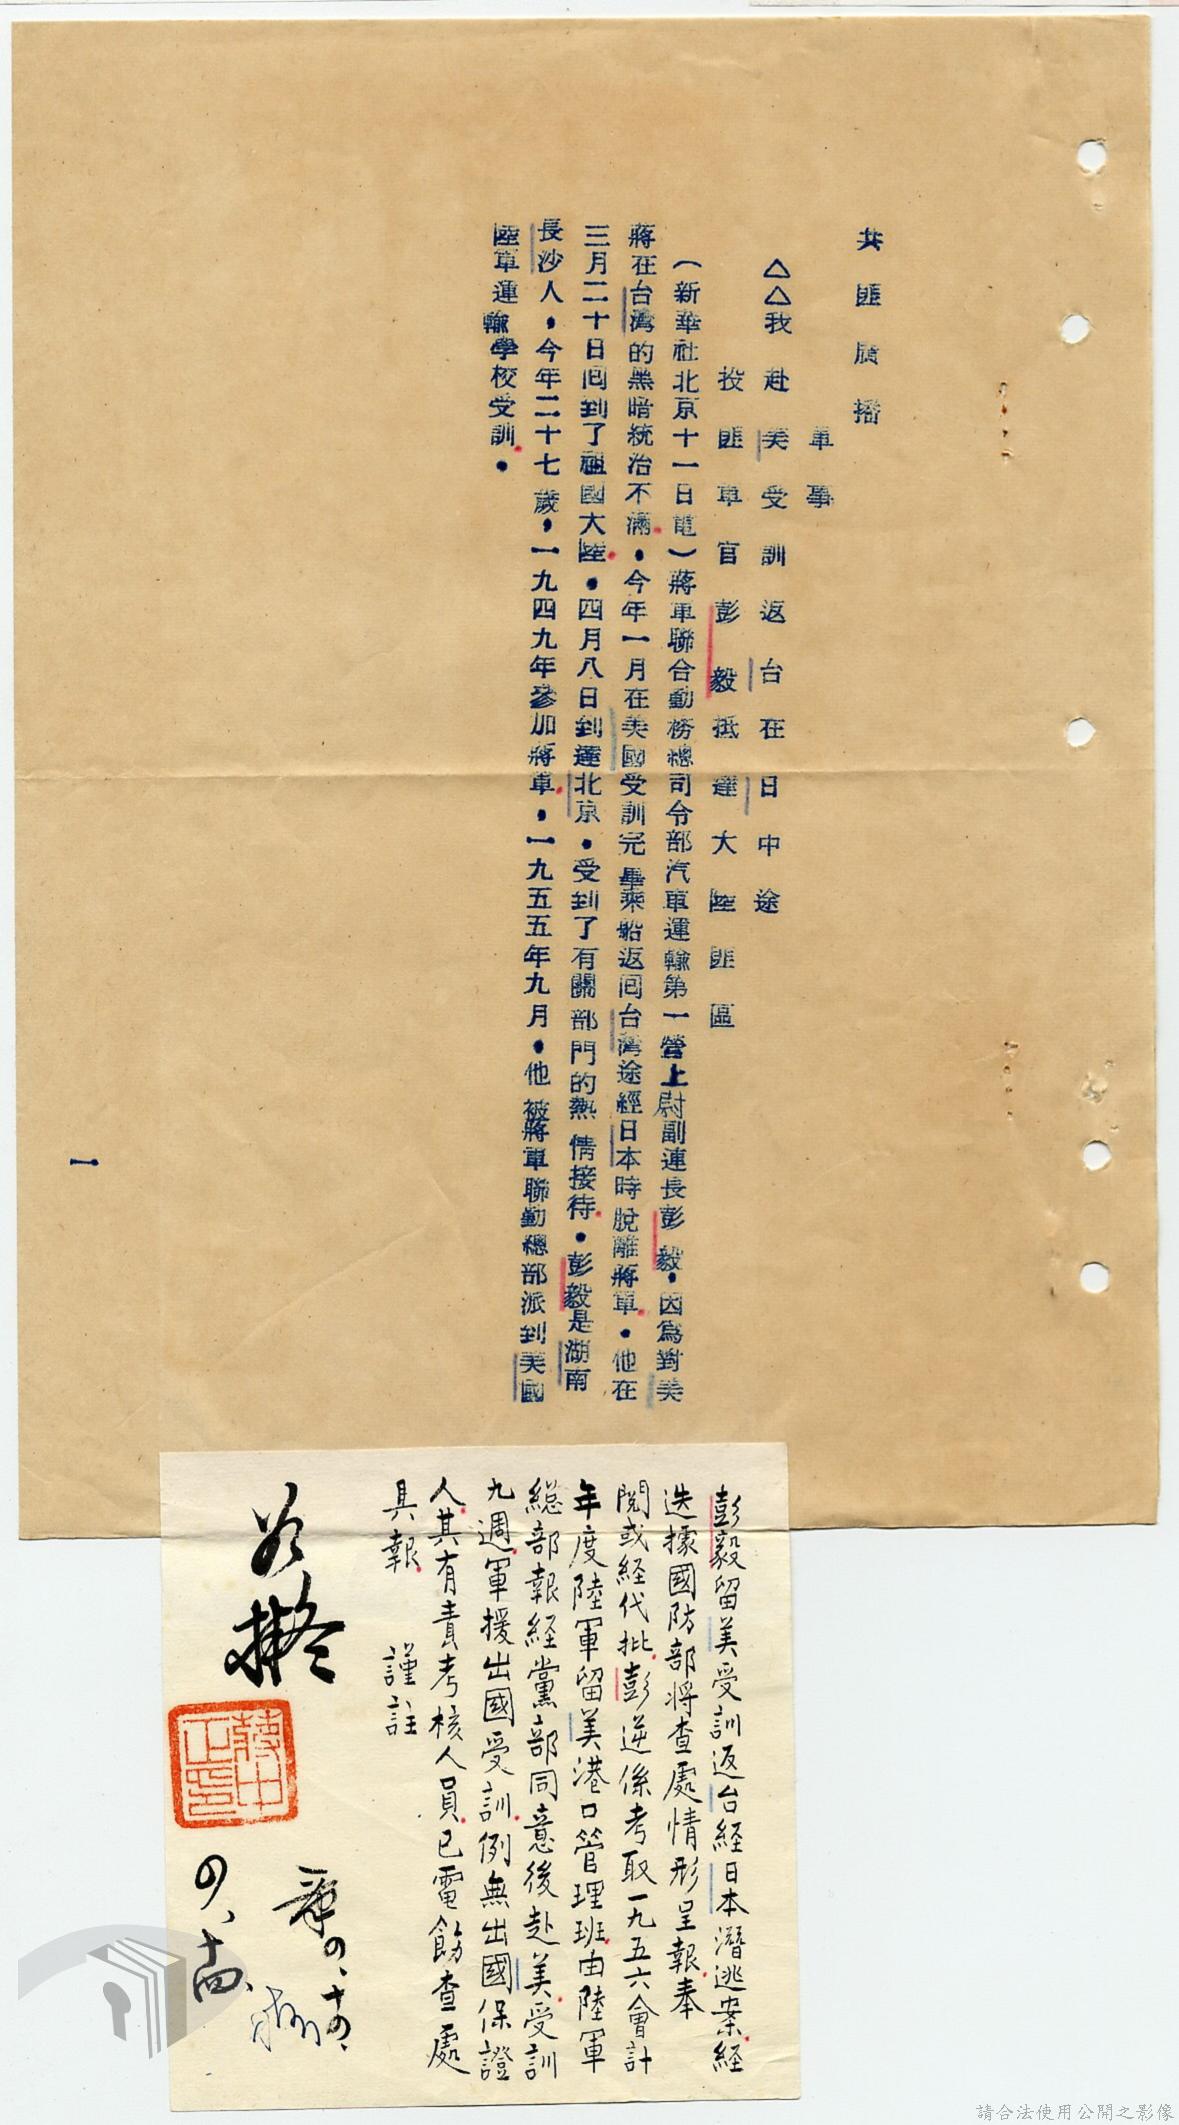 共匪廣播
軍事
△△我赴美受訓返台在日中途
投匪軍官彭毅抵達大陸匪區
(新華社北京十一日電)蔣軍聯合勤務總司令部汽車運輸第一營上尉副連長彭毅,因為對美
蔣在台灣的黑暗統治不滿.今年一月在美國受訓完畢乘船返回台灣途經日本時脫離蔣軍.他在
三月二十日回到了祖國大陸.四月八日到達北京.受到了有關部門的熱情接待.彭毅是湖南
長沙人.今年二十七歲.一九四九年參加蔣軍.一九五五年九月.他被蔣軍聯勤總部派到美國
陸軍運輸學校受訓.
一
彭毅留美受訓返台経日本潛逃案経
迭據國防部將查處情形呈報奉
閱或経代批彭逆係考取一九五六會計
年度陸軍留美港口管理班由陸軍
総部報経黨部同意後赴美受訓
九週軍援出國受訓例無出國保證
人其有責考核人員已電飭查處
具報 謹註
蔣中正印
四、十四、
四、十四、
請合法使用公開之影像